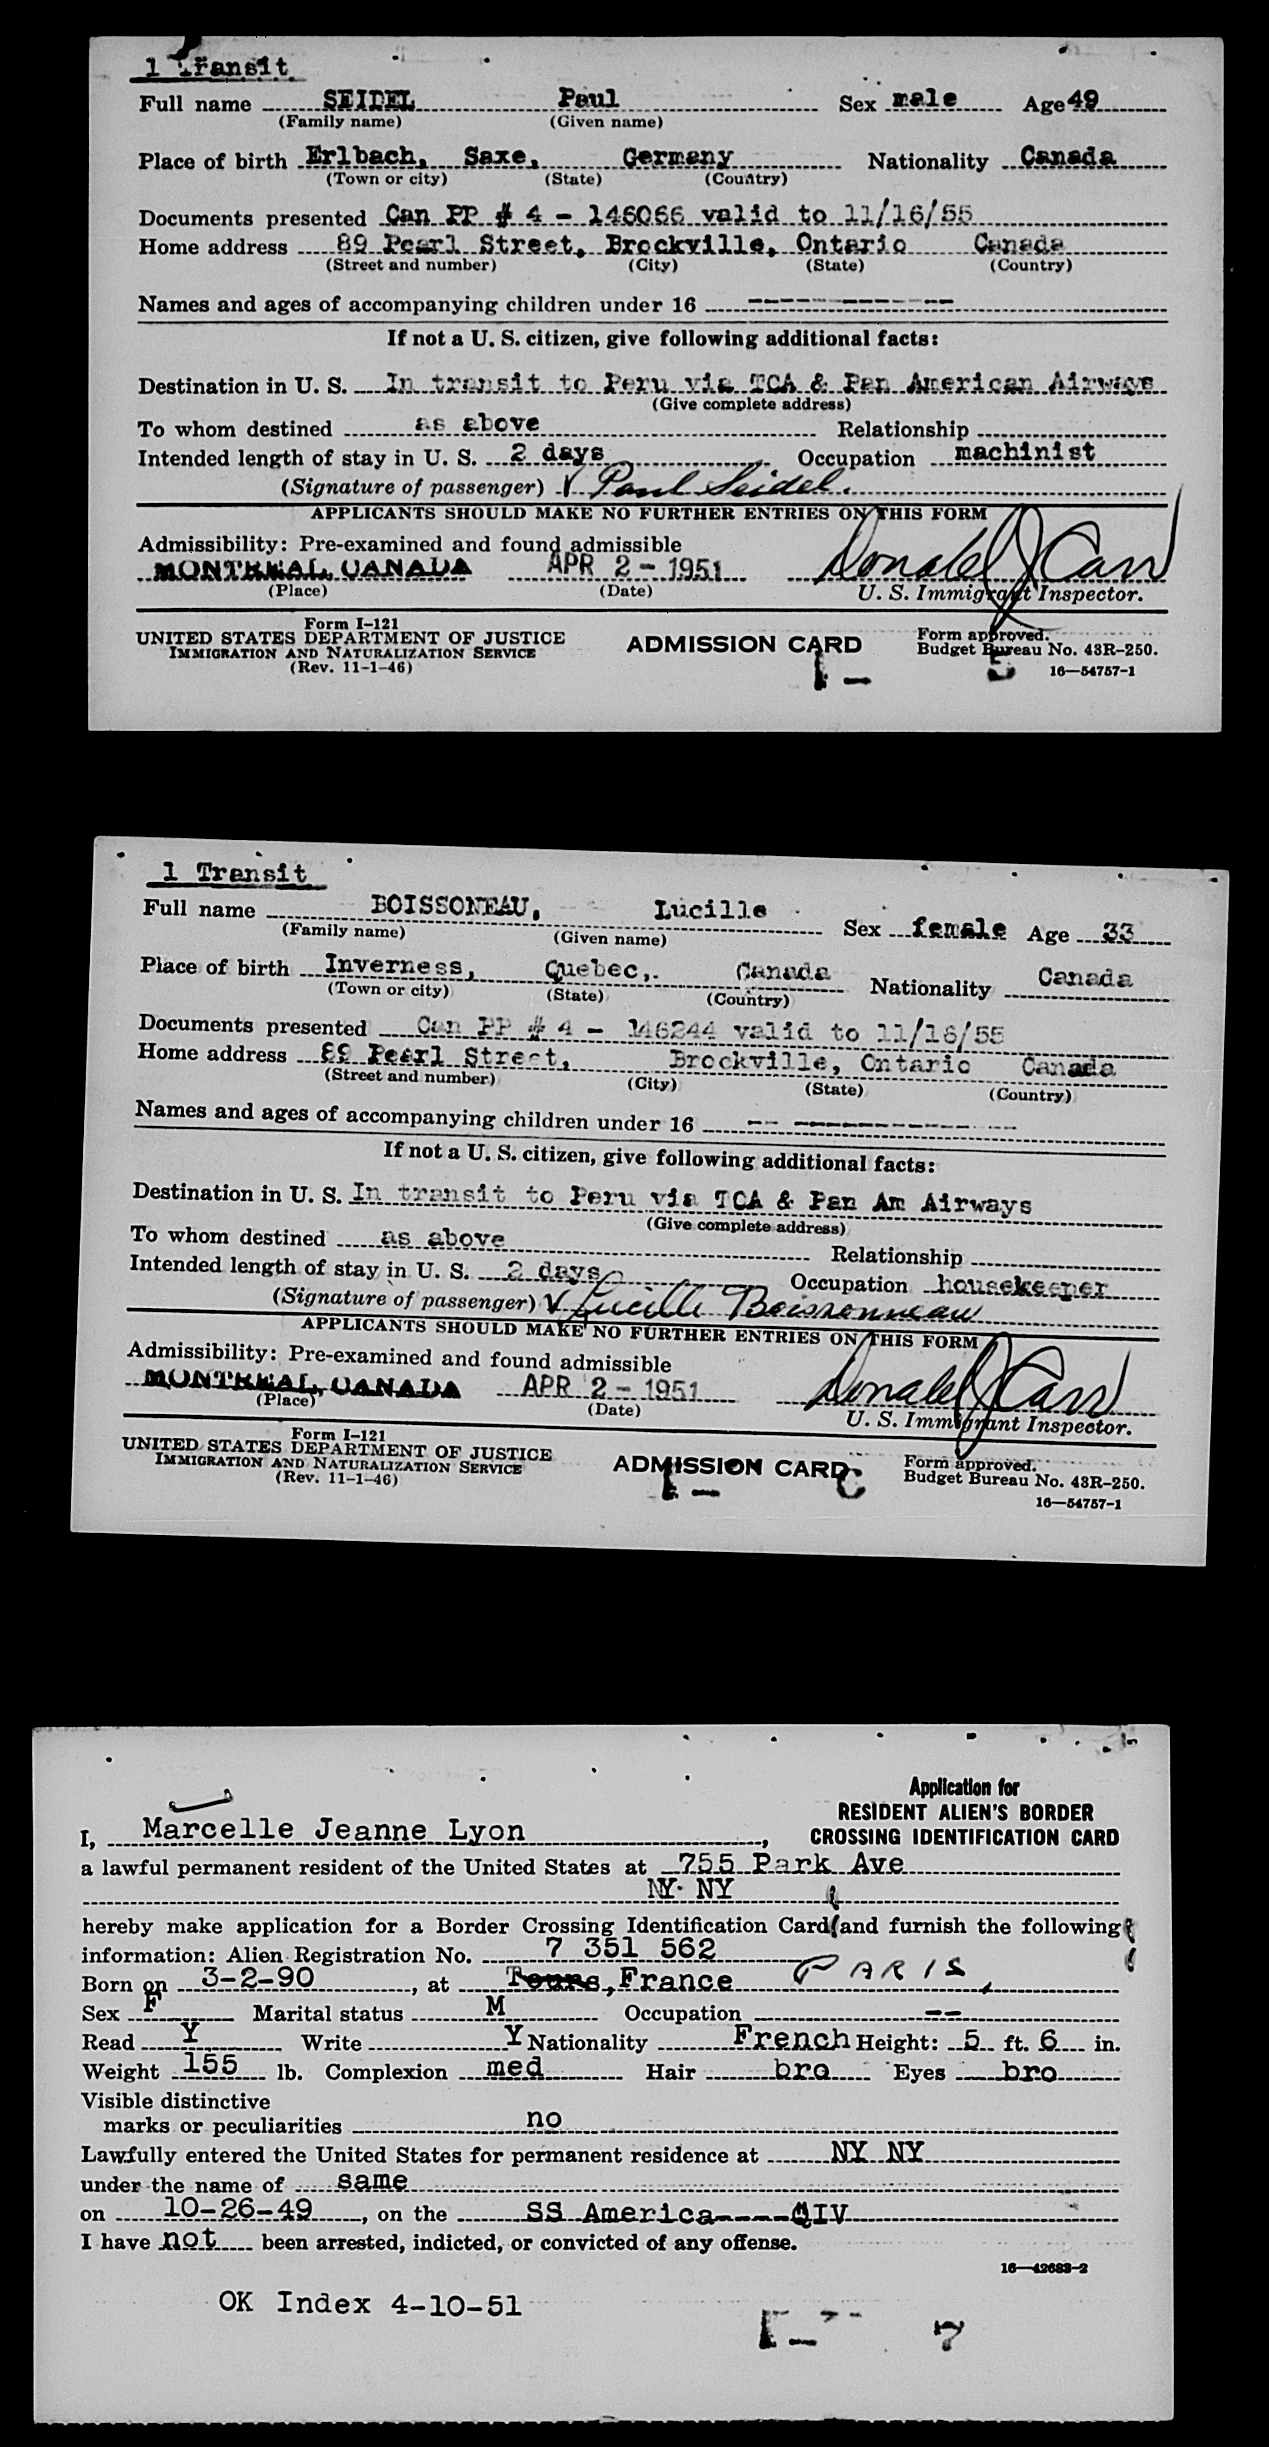 1 Transit
Full name SEIDEL Paul Sex male Age 49
(Family name) (Given name)
Place of birth Erlbach, Saxe, Germany Nationality Canada
(Town or city) (State) (Country)
Documents presented Can PP # 4 - 146066 valid to 11/16/55
Home address 89 Pearl Street, Brockville, Ontario Canada
(Street and number) (City) (State) (Country)
Names and ages of accompanying children under 16 --------------
If not a U. S. citizen, give following additional facts:
Destination in U. S. In transit to Peru via TCA & Pan American Airways
(Give complete address)
To whom destined as above Relationship
Intended length of stay in U. S. 2 days Occupation machinist
(Signature of passenger) √ Paul Seidel.
APPLICANTS SHOULD MAKE NO FURTHER ENTRIES ON THIS FORM
Admissibility: Pre-examined and found admissible
MONTREAL, CANADA APR 2 - 1951 Donald J Carr
(Place) (Date) U. S. Immigrant Inspector.
Form I-121
UNITED STATES DEPARTMENT OF JUSTICE
IMMIGRATION AND NATURALIZATION SERVICE
(Rev. 11-1-46)
ADMISSION CARD
Form approved.
Budget Bureau No. 43R-250.
16—54757-1
1 Transit
Full name BOISSONEAU, Lucille Sex female Age 33
(Family name) (Given name)
Place of birth Inverness, Quebec,. Canada Nationality Canada
(Town or city) (State) (Country)
Documents presented Can PP # 4 - 146244 valid to 11/16/55
Home address 89 Pearl Street, Brockville, Ontario Canada
(Street and number) (City) (State) (Country)
Names and ages of accompanying children under 16 -- --------------
If not a U. S. citizen, give following additional facts:
Destination in U. S. In transit to Peru via TCA & Pan Am Airways
(Give complete address)
To whom destined as above Relationship
Intended length of stay in U. S. 2 days Occupation housekeeper
(Signature of passenger) √ Lucille Boissonneau
APPLICANTS SHOULD MAKE NO FURTHER ENTRIES ON THIS FORM
Admissibility: Pre-examined and found admissible
MONTREAL, CANADA APR 2 - 1951 Donald J Carr
(Place) (Date) U. S. Immigrant Inspector.
Form I-121
UNITED STATES DEPARTMENT OF JUSTICE
IMMIGRATION AND NATURALIZATION SERVICE
(Rev. 11-1-46)
ADMISSION CARD
Form approved.
Budget Bureau No. 43R-250.
16—54757-1
Application for
RESIDENT ALIEN'S BORDER
CROSSING IDENTIFICATION CARD
I, Marcelle Jeanne Lyon,
a lawful permanent resident of the United States at 755 Park Ave
NY NY
hereby make application for a Border Crossing Identification Card and furnish the following
information: Alien Registration No. 7 351 562
Born on 3-2-90, at Tours, France PARIS,
Sex F Marital status M Occupation --
Read Y Write Y Nationality French Height: 5 ft. 6 in.
Weight 155 lb. Complexion med Hair bro Eyes bro
Visible distinctive
marks or peculiarities no
Lawfully entered the United States for permanent residence at NY NY
under the name of same
on 10-26-49, on the SS America----QIV
I have not been arrested, indicted, or convicted of any offense.
16—42683-2
OK Index 4-10-51
7